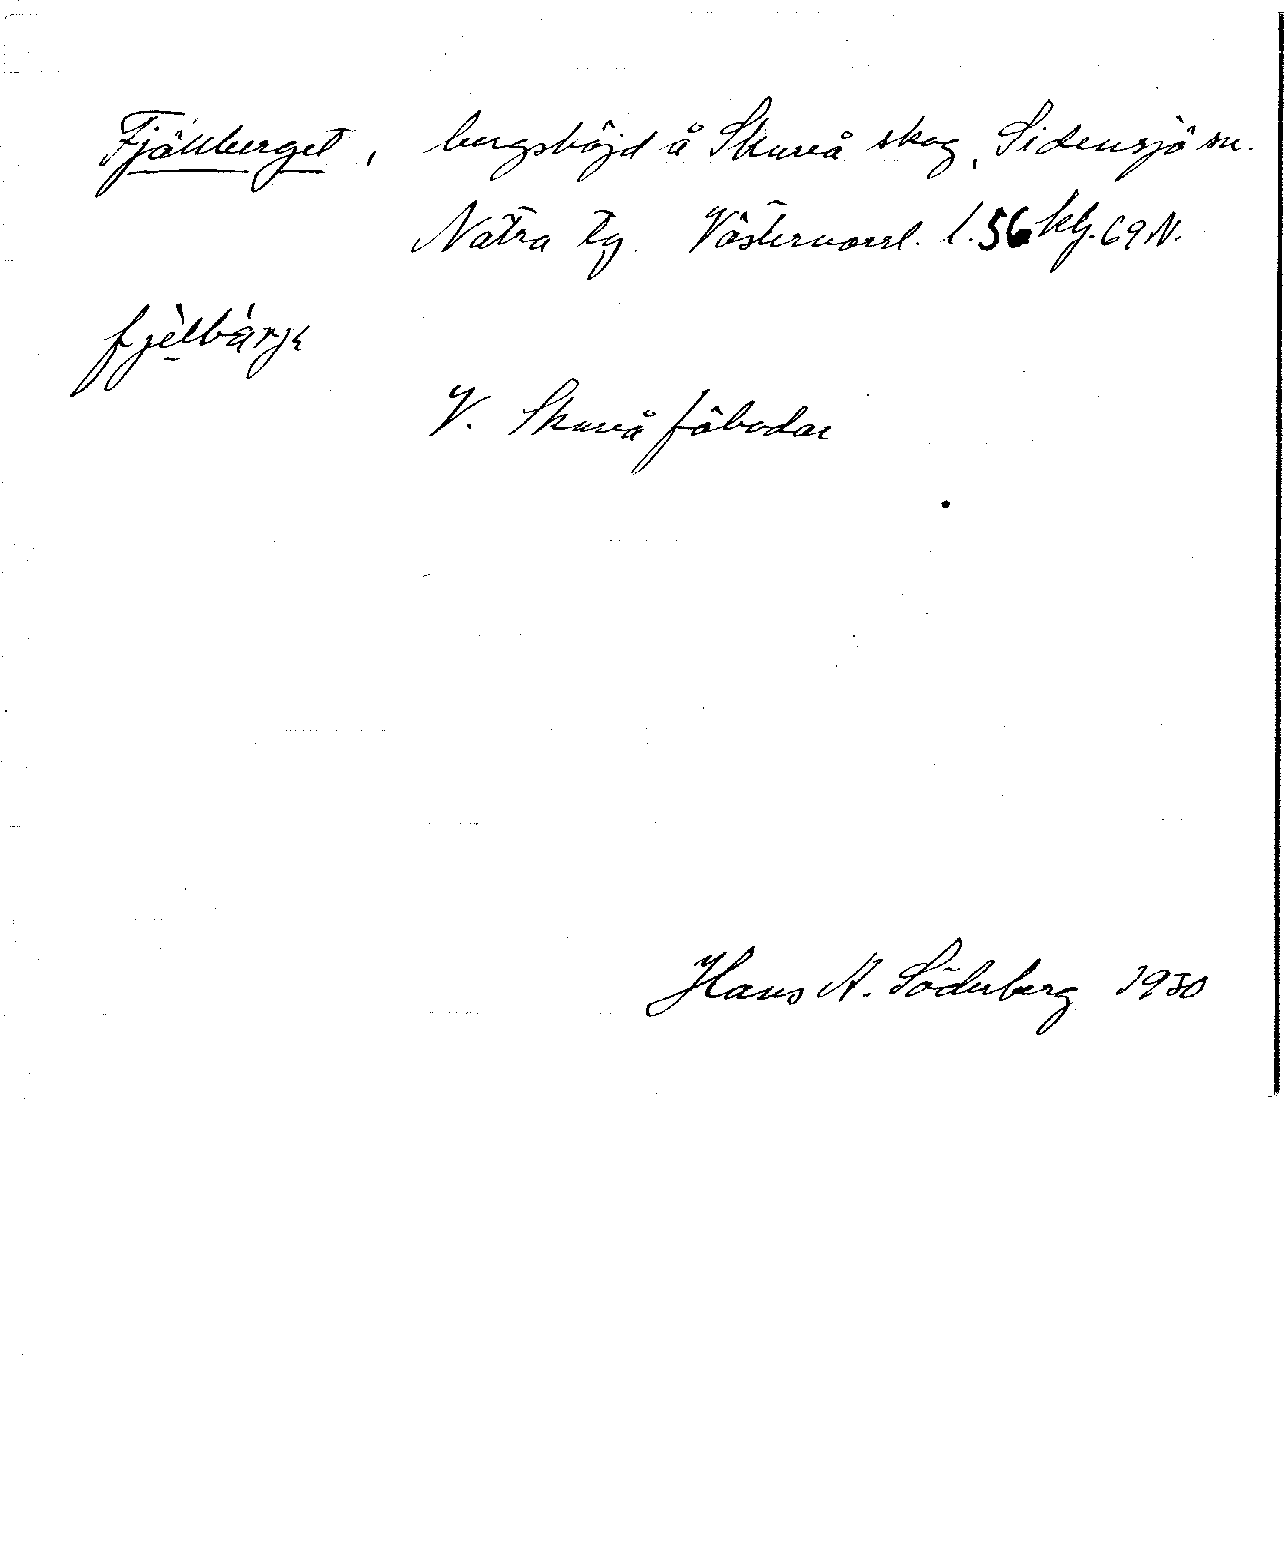 Fjällberget, bergshöjd å Skureå skog, Sidensjö sn.
Nätra tg. Västernorrl. l. 56 kbl. 69 N.
fjèlbàrjε
V. Skureå fäbodar
Hans A. Söderberg 1930